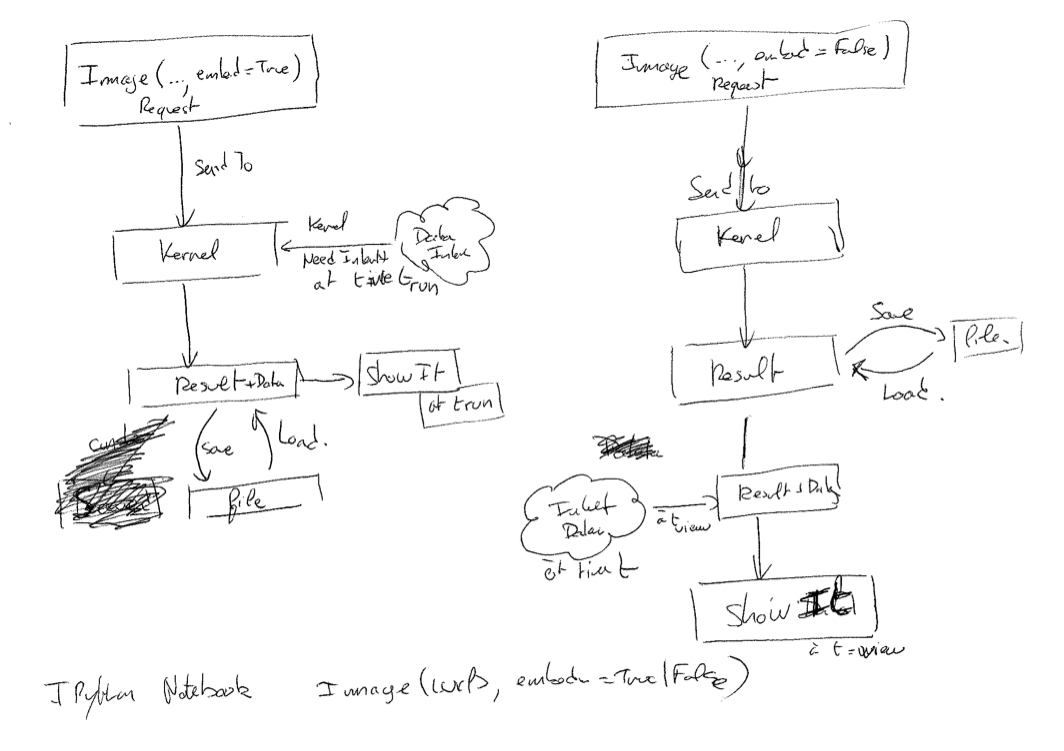 Image (..., embed=True)
Request
Send To
Kernel
Kernel
Need
at time trun
Data
Result+Data
Show It
at trun
Save
Load.
file
Image (..., embed=False)
Request
Send to
Kernel
Result
Save
file.
Load.
Result+Data
Data
at tview
at time t
Show It
à t=view
IPython Notebook Image(, embed=True|False)